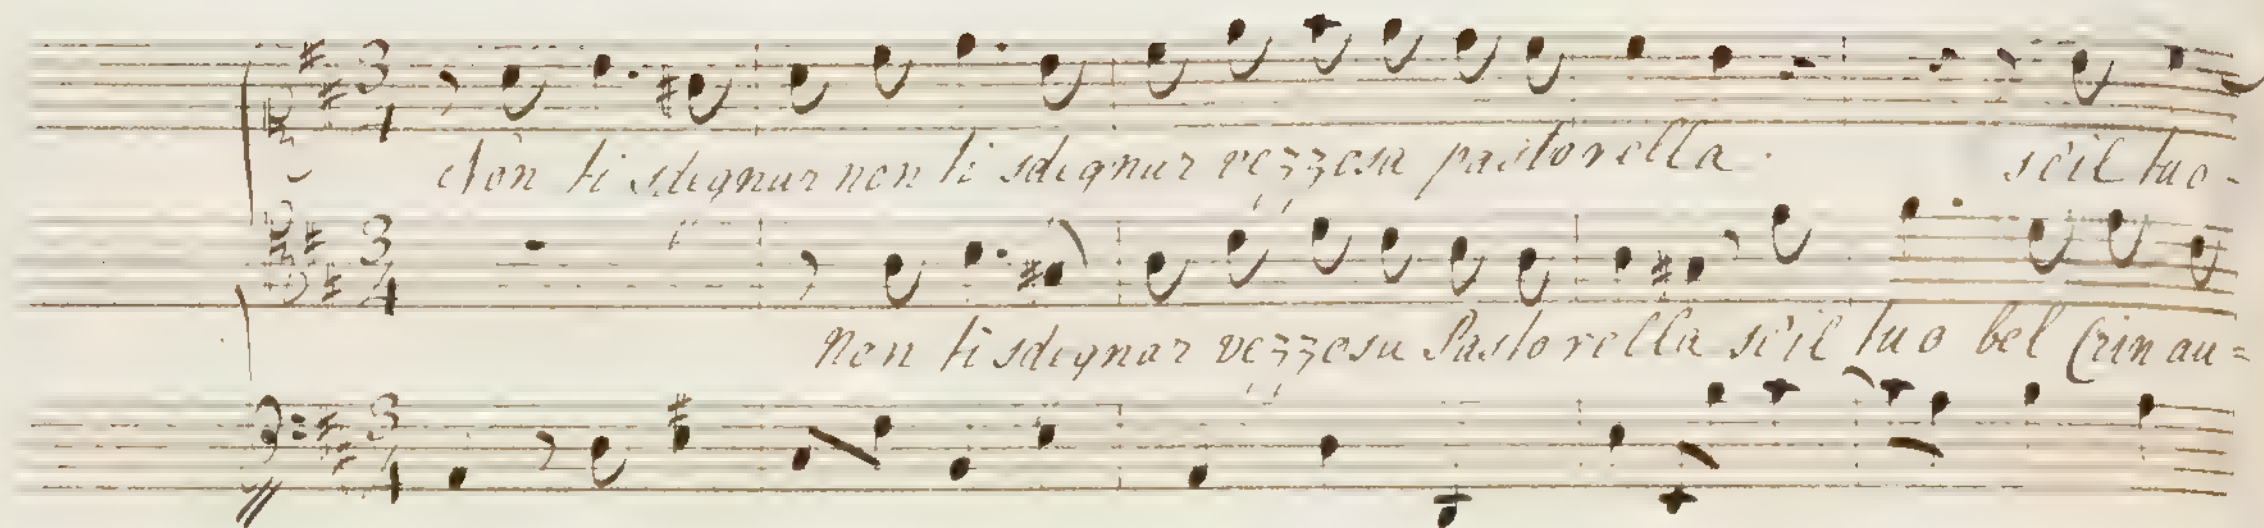 Non ti sdegnar non ti sdegnar vezzosa pastorella. s'è il tuo-
Non ti sdegnar vezzosa Pastorella s'è il tuo bel Crin au=